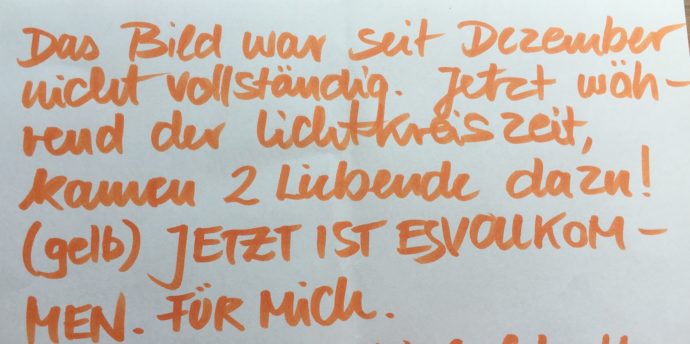 Das Bild war seit Dezember
nicht vollständig. Jetzt wäh-
rend der Lichtkreiszeit,
kamen 2 Liebende dazu!
(gelb) JETZT IST ES VOLLKOM-
MEN. FÜR MICH.